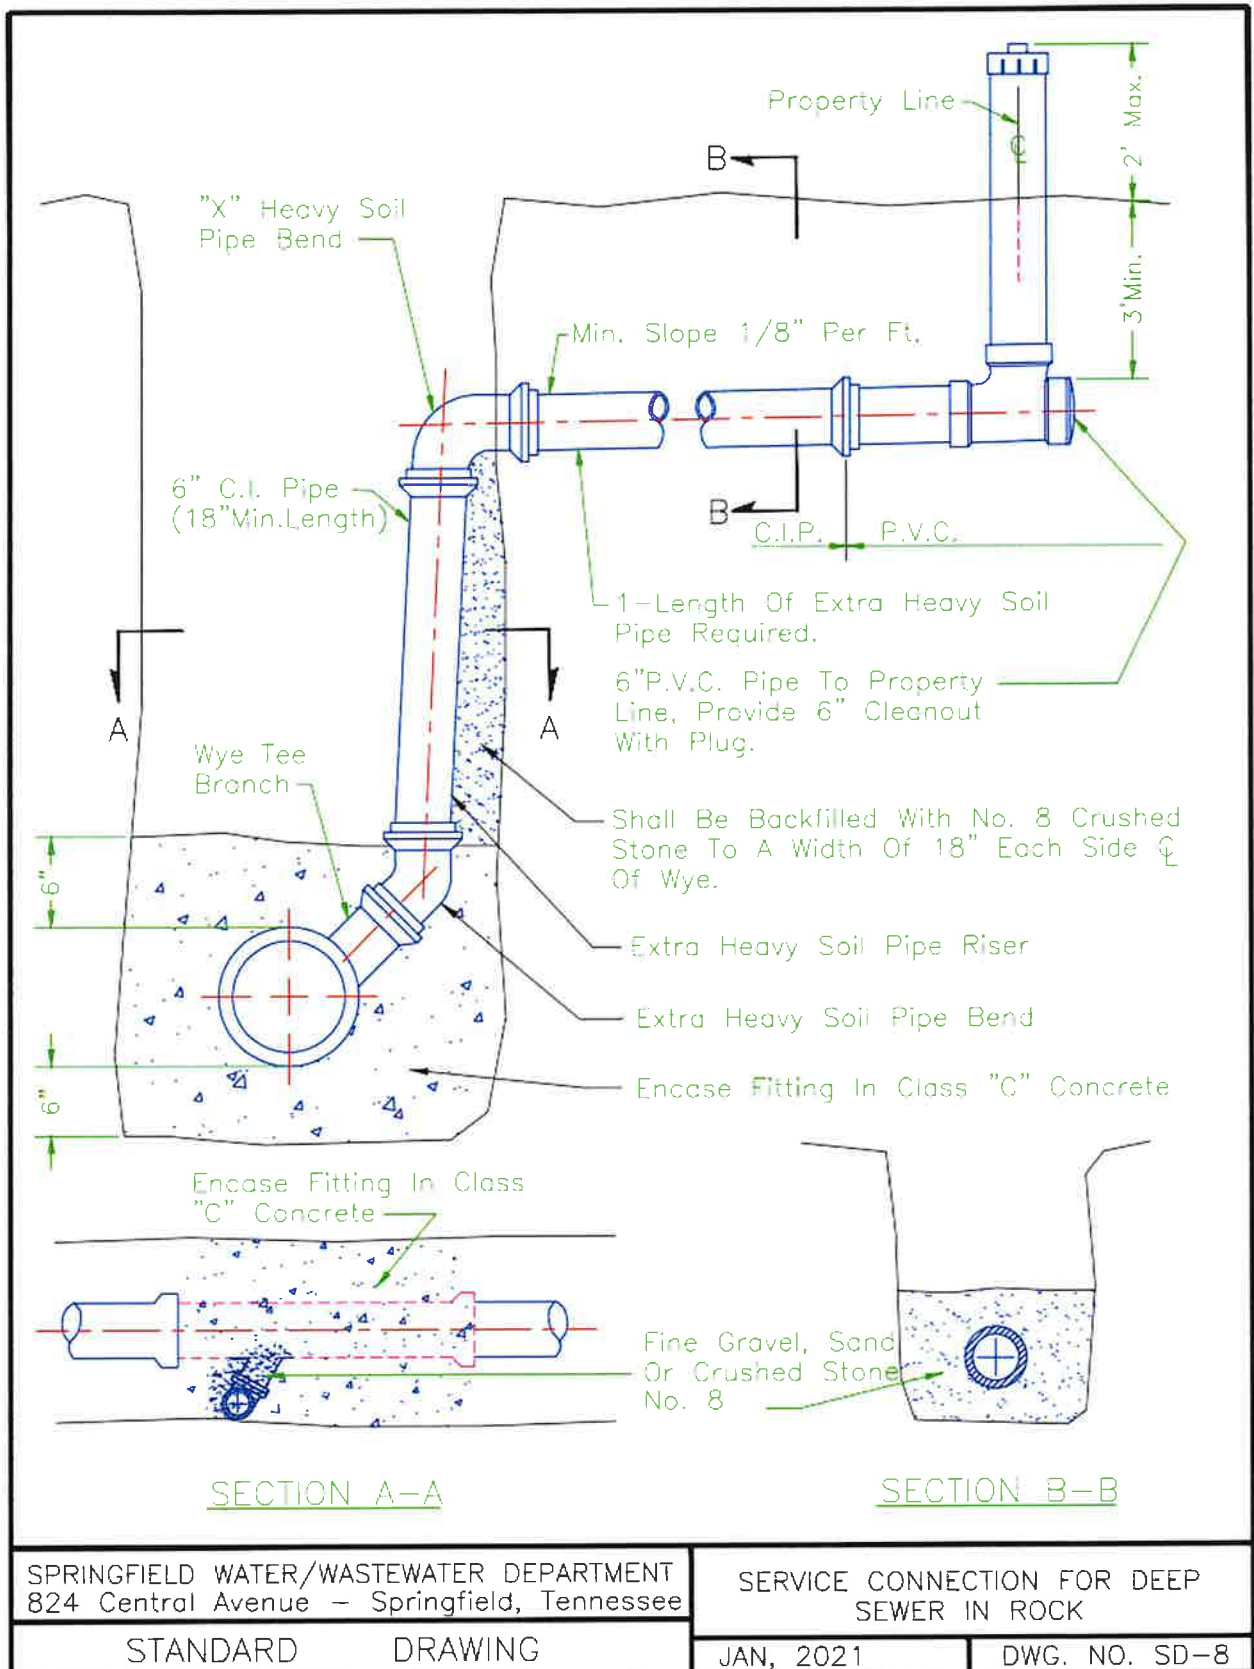 Property Line
2' Max.
B
"X" Heavy Soil
Pipe Bend
3'Min.
Min. Slope 1/8" Per Ft.
6" C.I. Pipe
(18"Min.Length)
B
C.I.P.
P.V.C.
1-Length Of Extra Heavy Soil
Pipe Required.
6"P.V.C. Pipe To Property
Line, Provide 6" Cleanout
With Plug.
A
A
Wye Tee
Branch
Shall Be Backfilled With No. 8 Crushed
Stone To A Width Of 18" Each Side ℄
Of Wye.
6"
Extra Heavy Soil Pipe Riser
Extra Heavy Soil Pipe Bend
Encase Fitting In Class "C" Concrete
6"
Encase Fitting In Class
"C" Concrete
Fine Gravel, Sand
Or Crushed Stone
No. 8
SECTION A-A
SECTION B-B
SPRINGFIELD WATER/WASTEWATER DEPARTMENT
824 Central Avenue - Springfield, Tennessee
STANDARD DRAWING
SERVICE CONNECTION FOR DEEP
SEWER IN ROCK
JAN, 2021
DWG. NO. SD-8